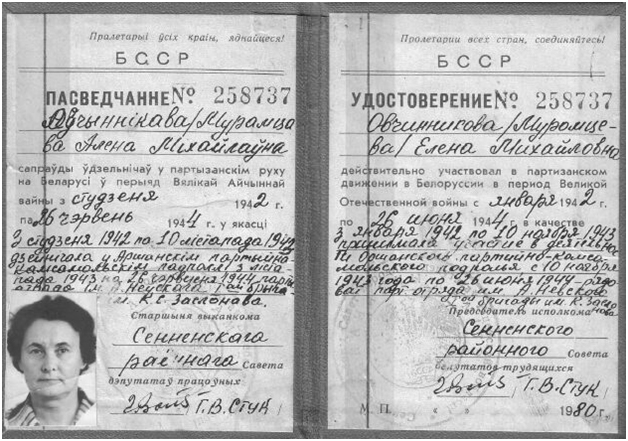 Пролетарыі ўсіх краін, яднайцеся!
БССР
ПАСВЕДЧАННЕ № 258737
Аўчыннікава/Мурамца
ва Алена Міхайлаўна
сапраўды ўдзельнічаў у партызанскім руху
на Беларусі ў перыяд Вялікай Айчыннай
вайны з студзеня 1942 г.
па 26 чэрвень 1944 г. у якасці
З студзеня 1942 по 10 лістапада 1943
дзейнічала у Аршанскім партыйна
камсамольскім падполлі з ліста
пада 1943 па 26 чэрвеня 1944
К.С. Заслонава.
Старшыня выканкома
Сенненскага
раённага Савета
дэпутатаў працоўных
Т.В.Стук
Пролетарии всех стран, соединяйтесь!
БССР
УДОСТОВЕРЕНИЕ № 258737
Овчинникова/Муромце-
ва/Елена Михайловна
действительно участвовал в партизанском
движении в Белоруссии в период Великой
Отечественной войны с января 1942 г.
по 26 июня 1944 г. в качестве
З января 1942 по 10 ноября 1943
принимала участие в деятельно
сти Оршанского партийно-комсо
мольского подполья с 10 ноября
1943 года по 26 июня 1944-рядо
вой парт.отряда им. А.Невского
бригады им. К.Засло
нова
Председатель исполкома
Сенненского
районного Совета
депутатов трудящихся
Т.В.Стук
М. П. « » 1980 г.